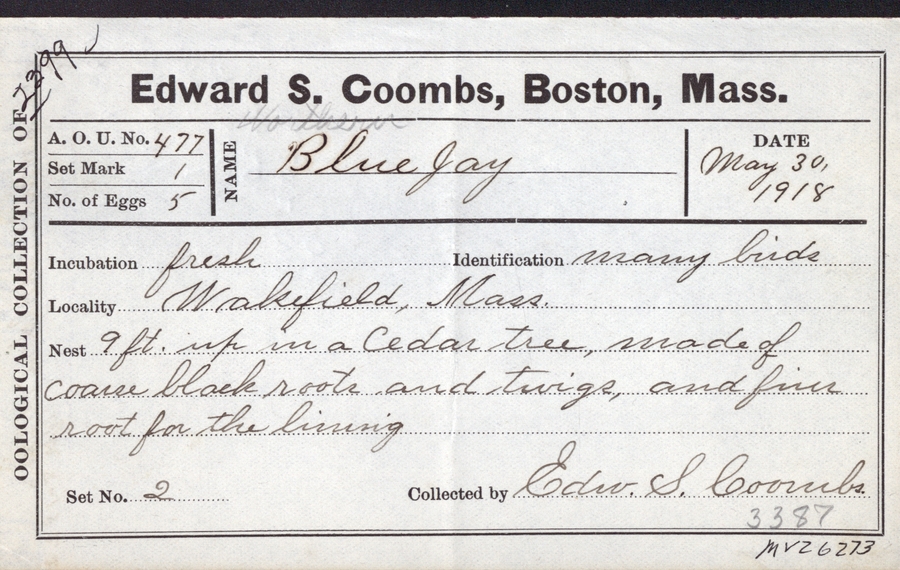 2399
OOLOGICAL COLLECTION OF
Edward S. Coombs, Boston, Mass.
A. O. U. No. 477
Set Mark 1
No. of Eggs 5
NAME
Northern
Blue Jay
DATE
May 30,
1918
Incubation fresh Identification many birds
Locality Wakefield, Mass.
Nest 9 ft. up in a Cedar tree, made of
coarse black roots and twigs, and finer
root for the lining
Set No. 2 Collected by Edw. S. Coombs.
3387
MVZ6273